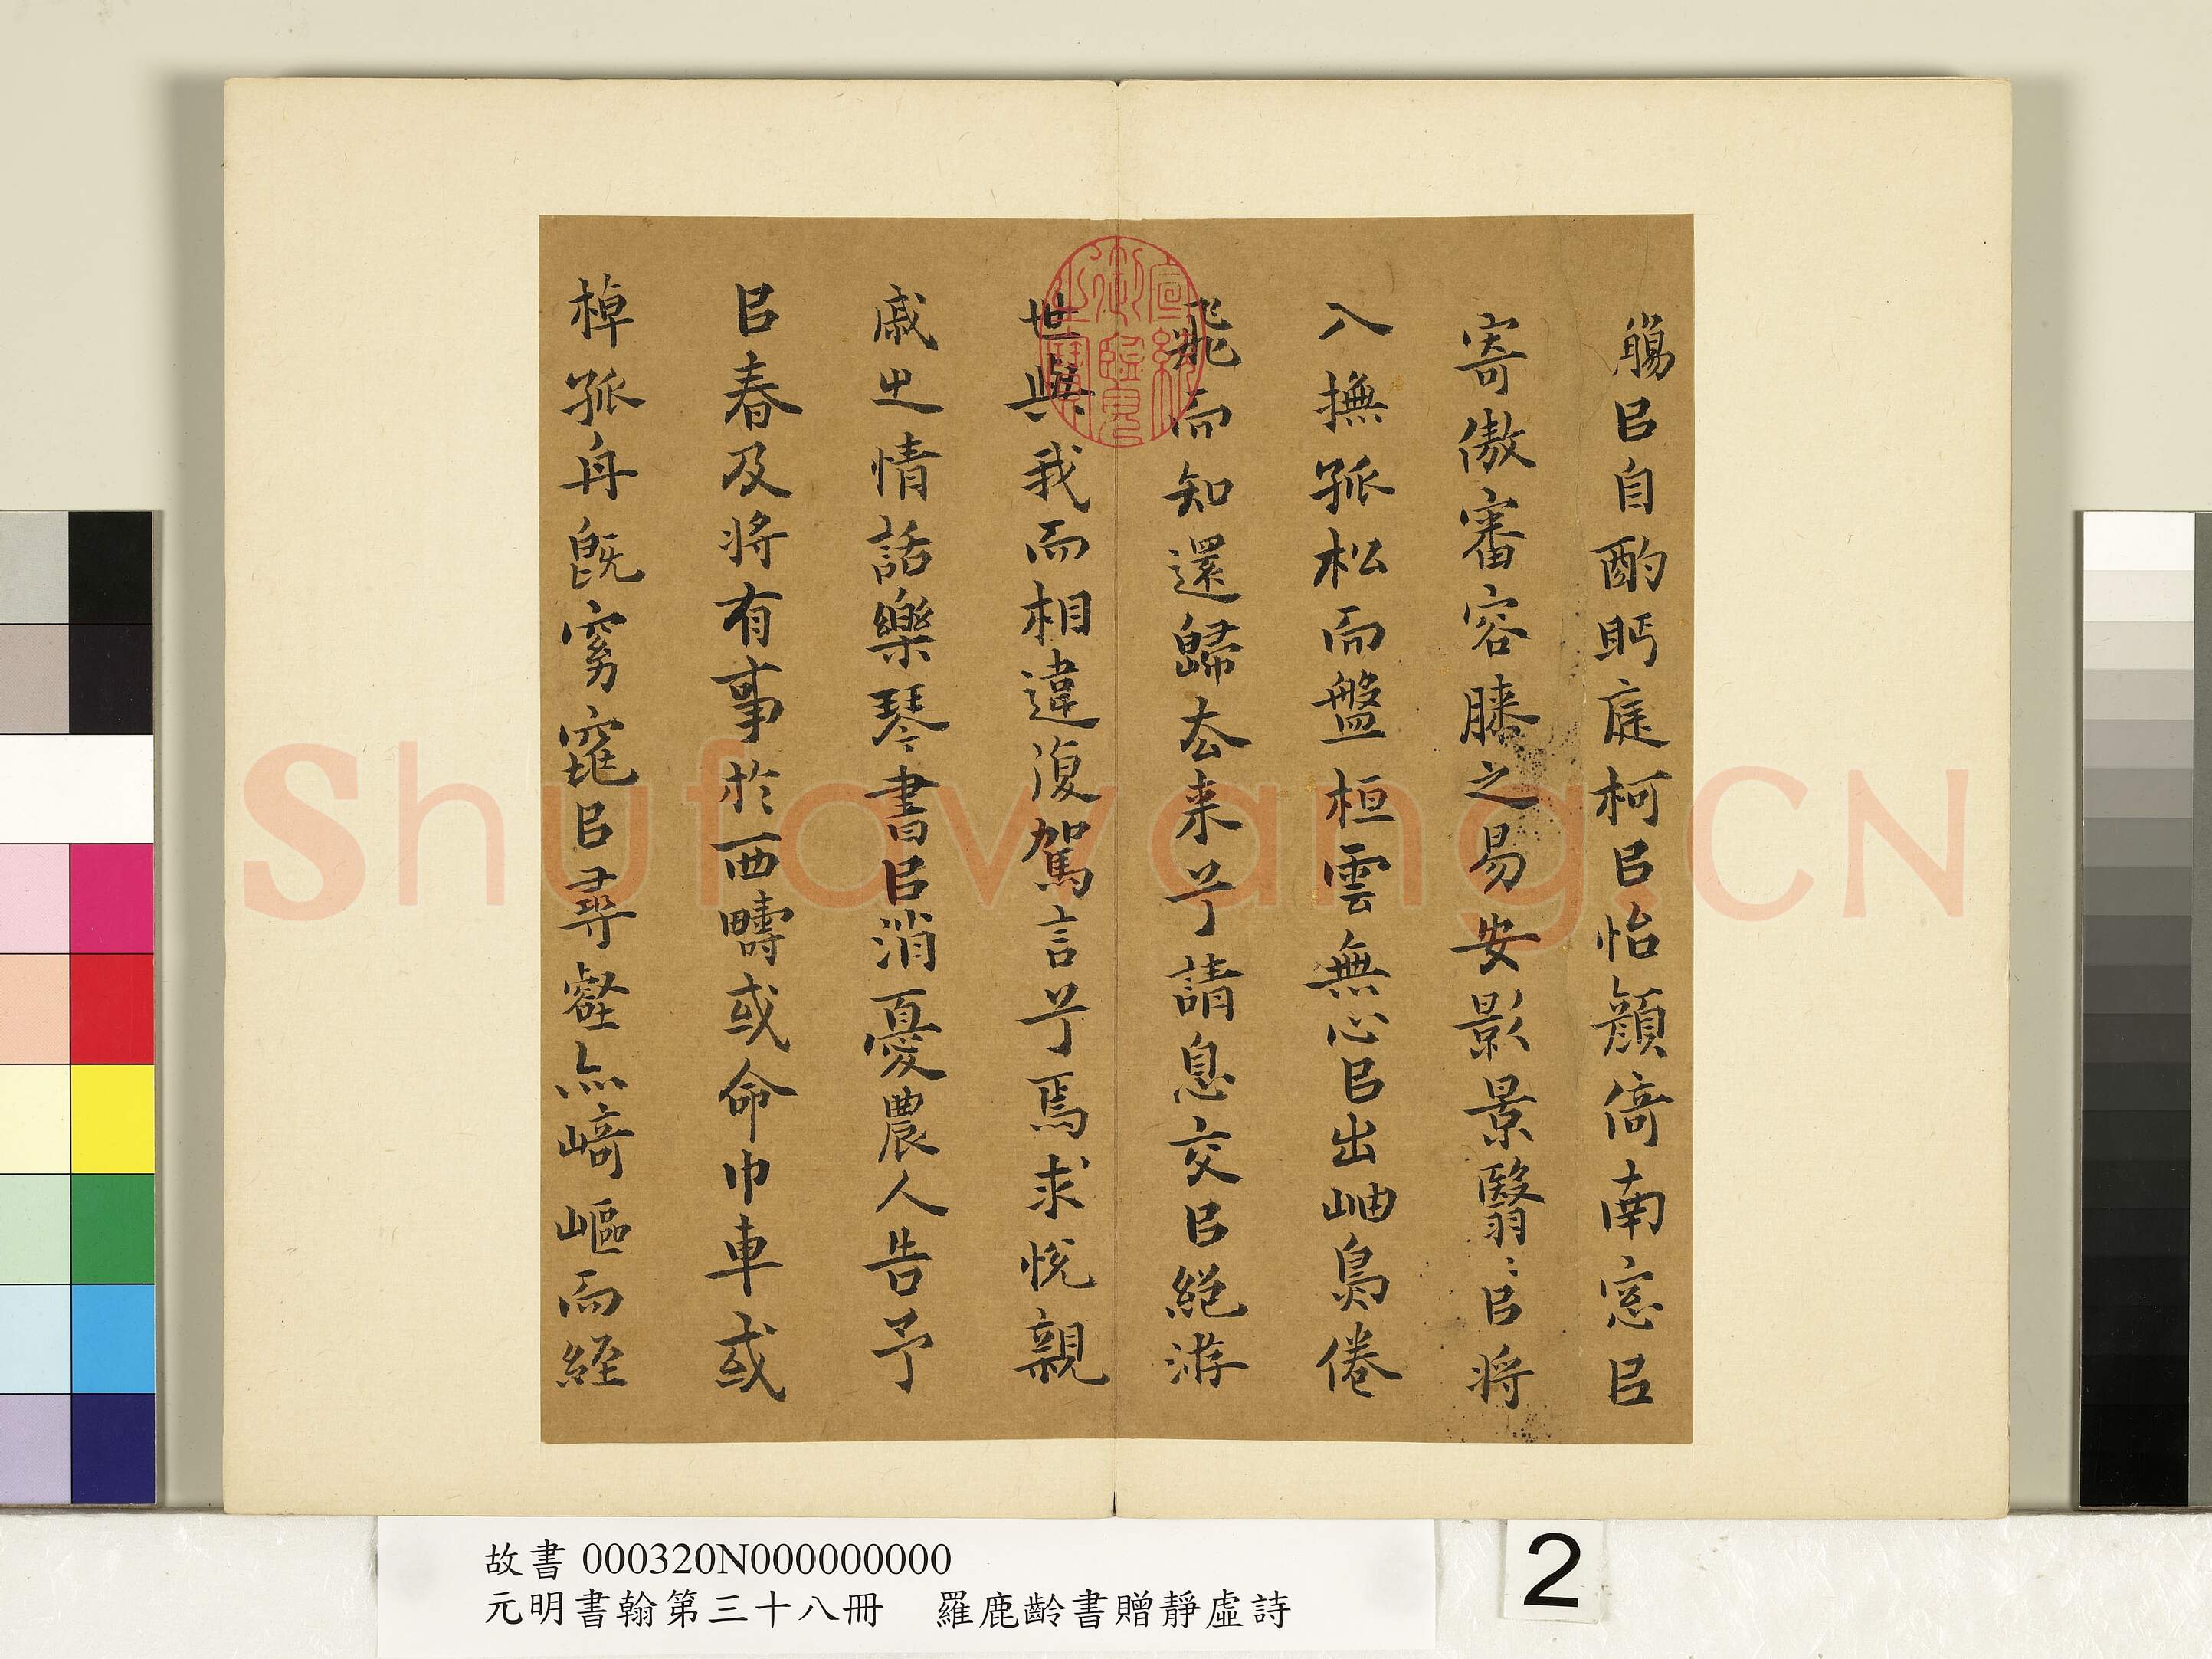 觴㠯自酌眄庭柯㠯怡顔倚南窓㠯
寄傲審容膝之易安影景翳〻㠯将
入撫孤松而盤桓雲無心㠯出岫鳥倦
飛而知還歸去来兮請息交㠯絶游
世與我而相違復駕言兮焉求悦親
戚之情話樂琴書㠯消憂農人告予
㠯春及将有事於西疇或命巾車或
棹孤舟既窈窕㠯尋壑亦崎嶇而経
宣統御覽之寶
Shufawang.CN
故書 000320N000000000
元明書翰第三十八冊 羅鹿齡書贈靜虛詩
2